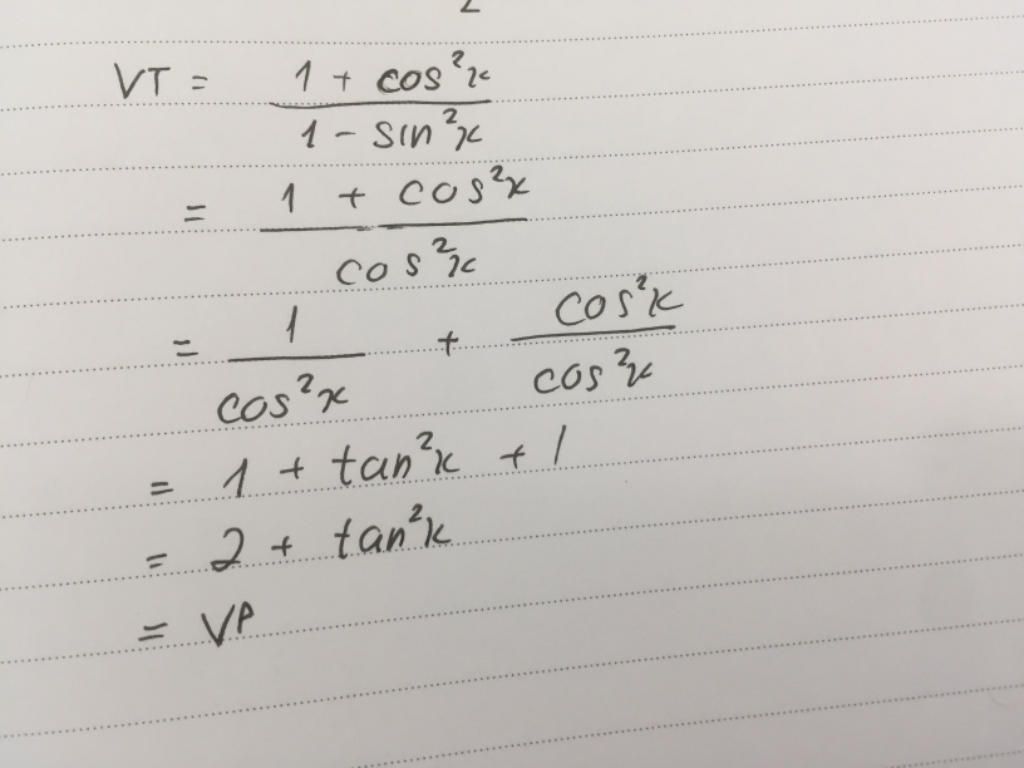 VT = (1 + cos²x)/(1 - sin²x)
= (1 + cos²x)/(cos²x)
= 1/(cos²x) + (cos²x)/(cos²x)
= 1 + tan²x + 1
= 2 + tan²x
= VP